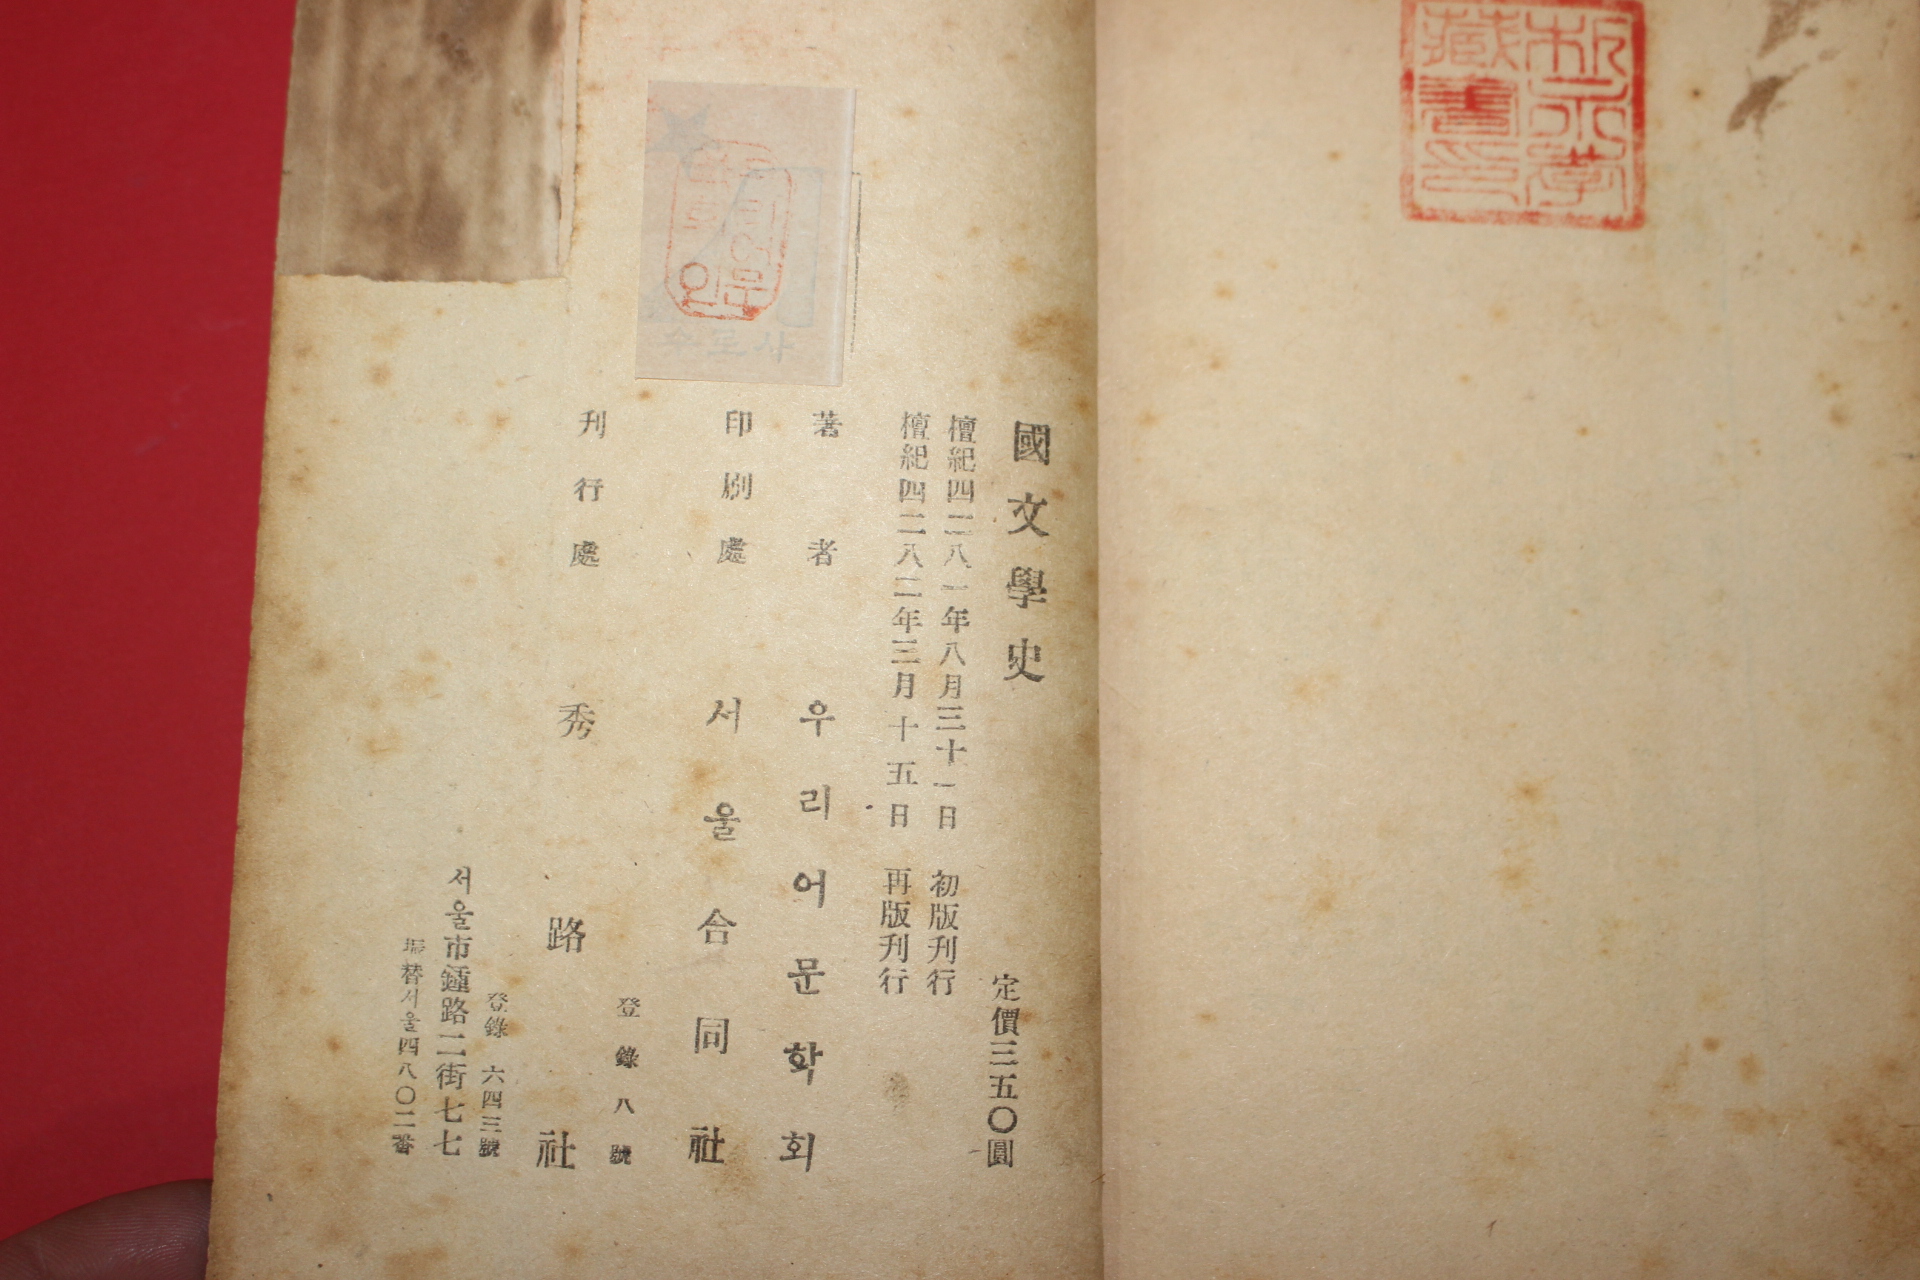 藏書印
國文學史
定價三五〇圓
檀紀四二八一年八月三十一日 初版刊行
檀紀四二八二年三月十五日 再版刊行
著者 우리어문학회
印刷處 서울合同社
登錄八號
刊行處 秀路社
登錄 六四三號
서울市鍾路二街七七
振替서울四八〇二番
우리어문
학회인
수로사